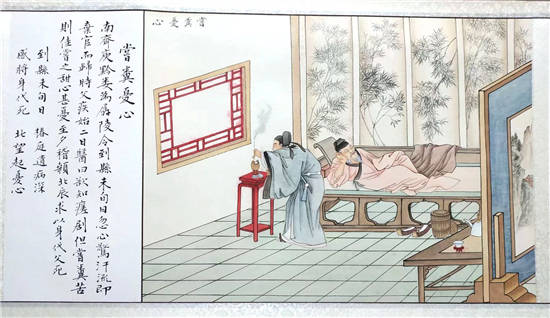 嘗糞憂心
南齊庾黔婁為孱陵令到縣未旬日忽心驚汗流即
棄官而歸時父疾始二日醫曰欲知瘥劇但嘗糞苦
則佳嘗之甜心甚憂至夕稽顙北辰求以身代父死
到縣未旬日 椿庭遘病深
感將身代死 北望起憂心
嘗糞憂心